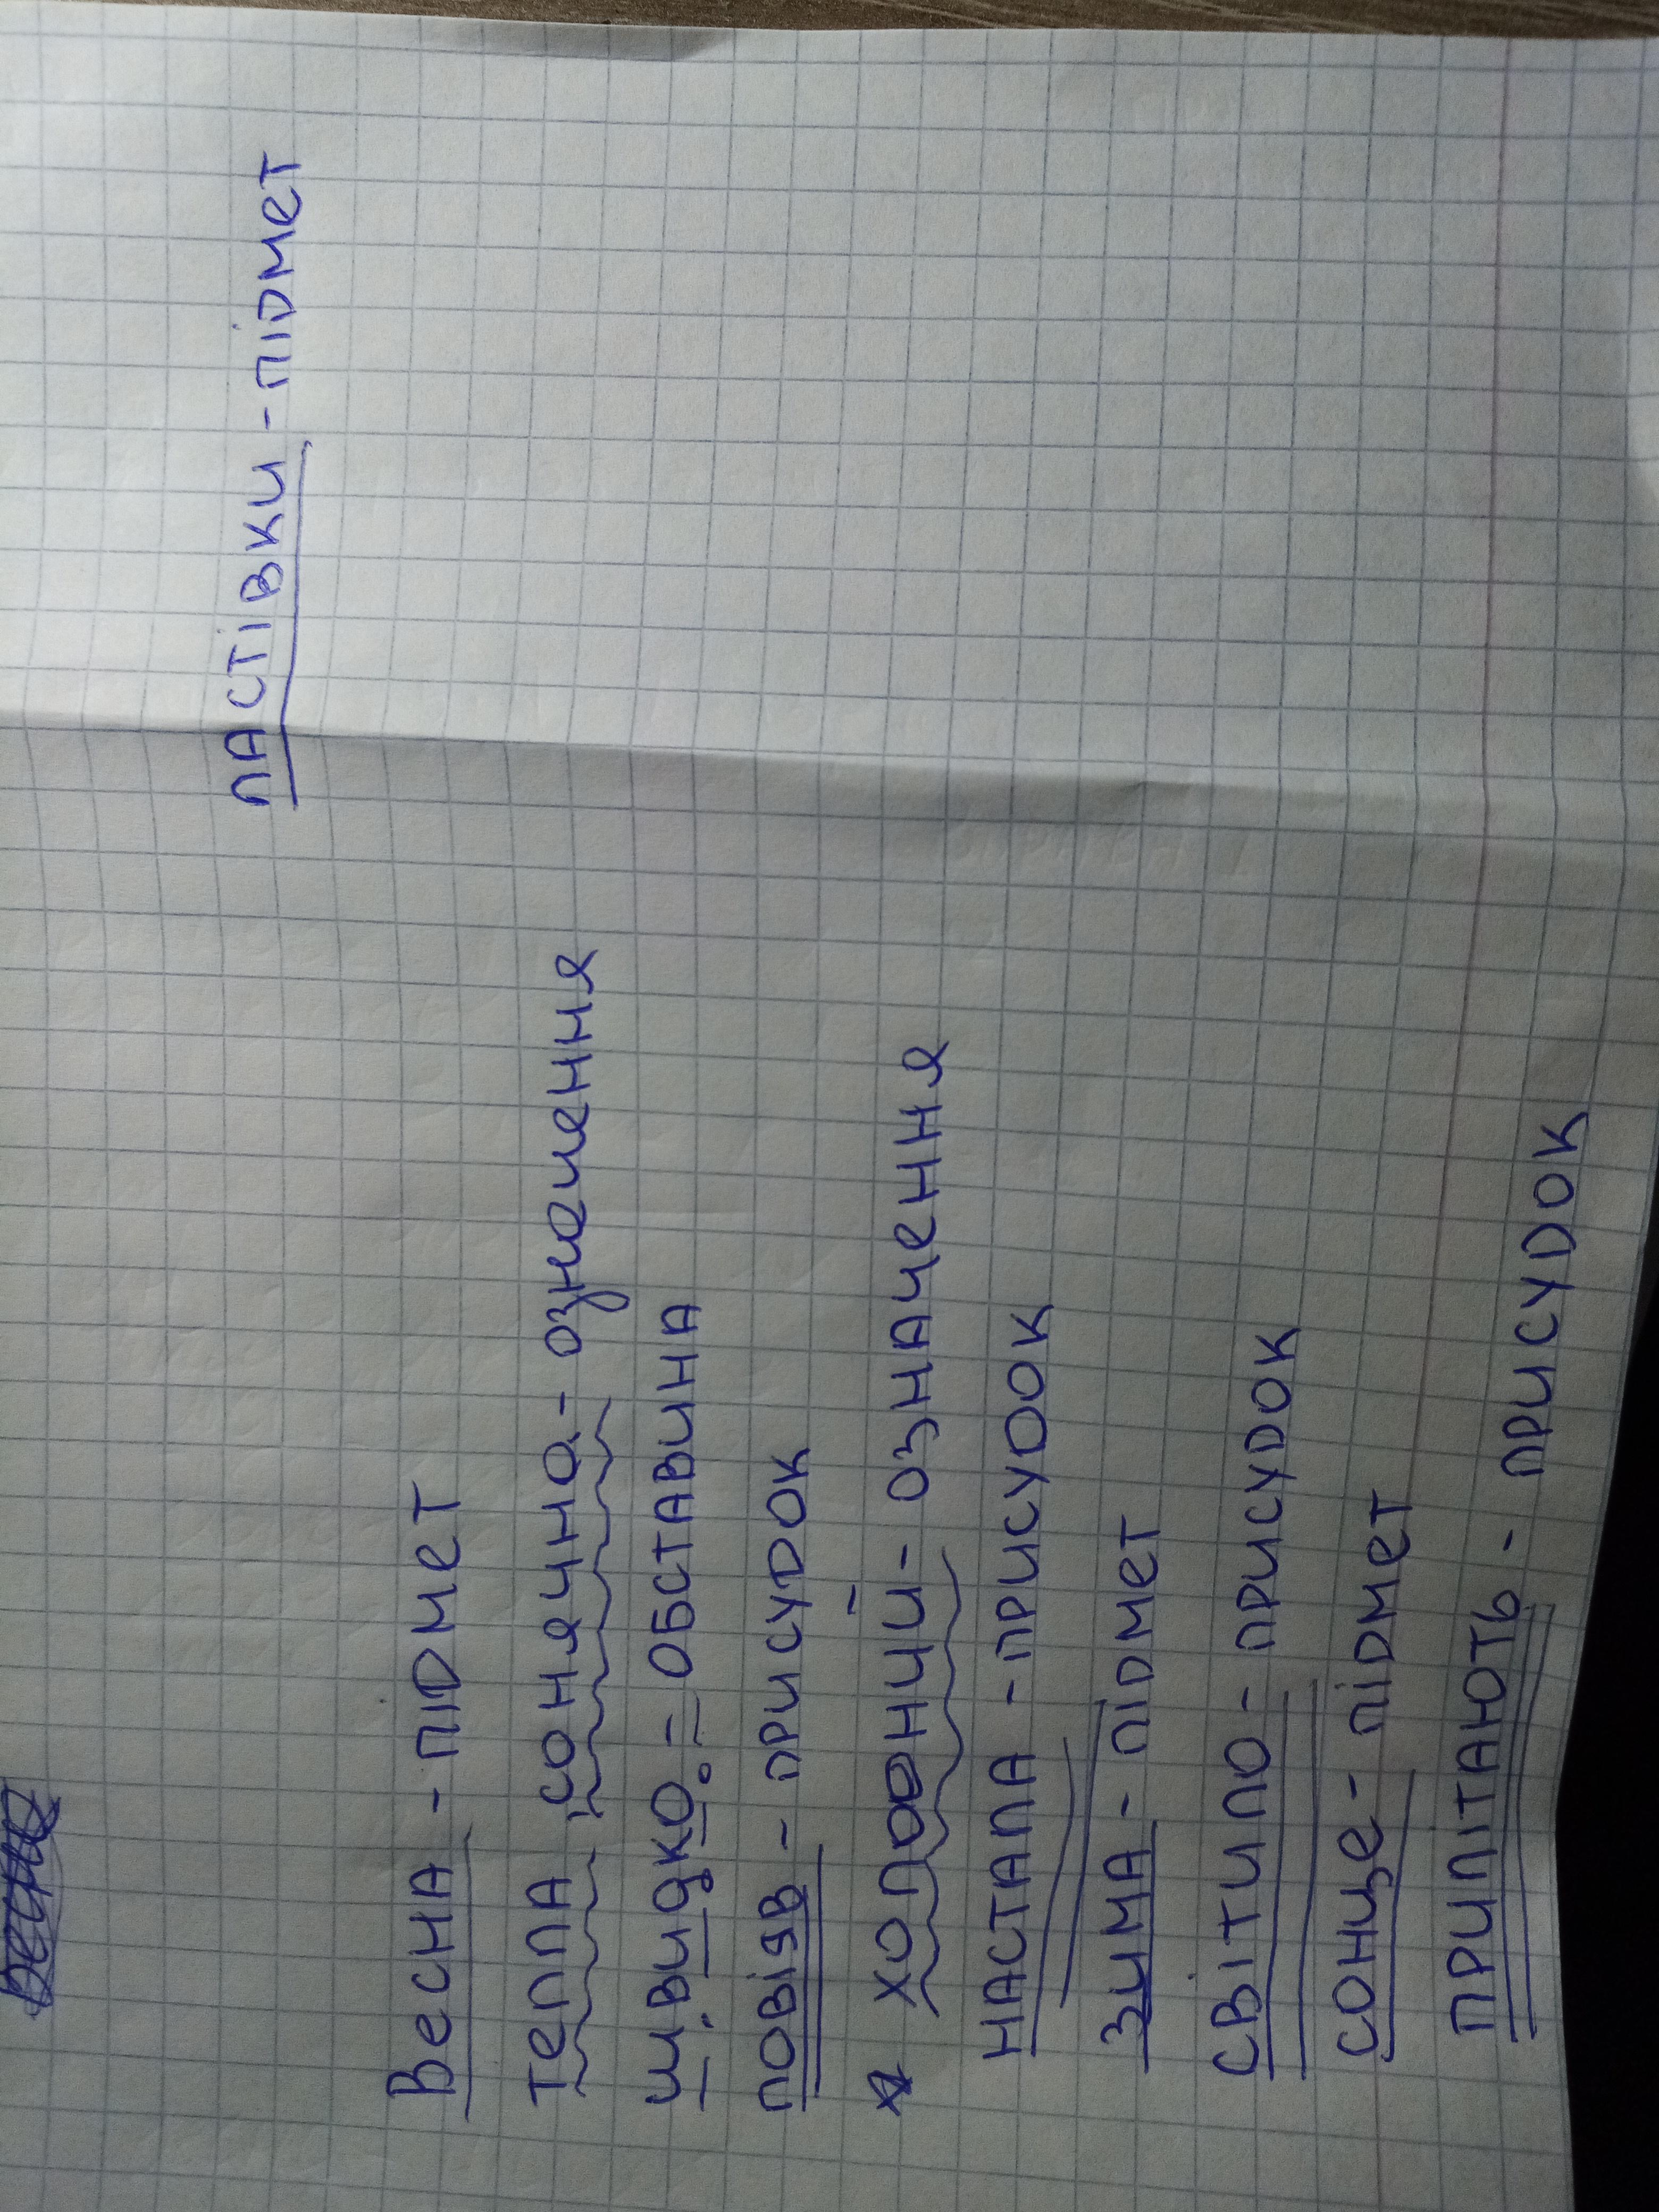 Весна - підмет
тепла, сонячна - означення
швидко - обставина
повіяв - присудок
холодний - означення
настала - присудок
зима - підмет
світило - присудок
сонце - підмет
прилітають - присудок
ластівки - підмет